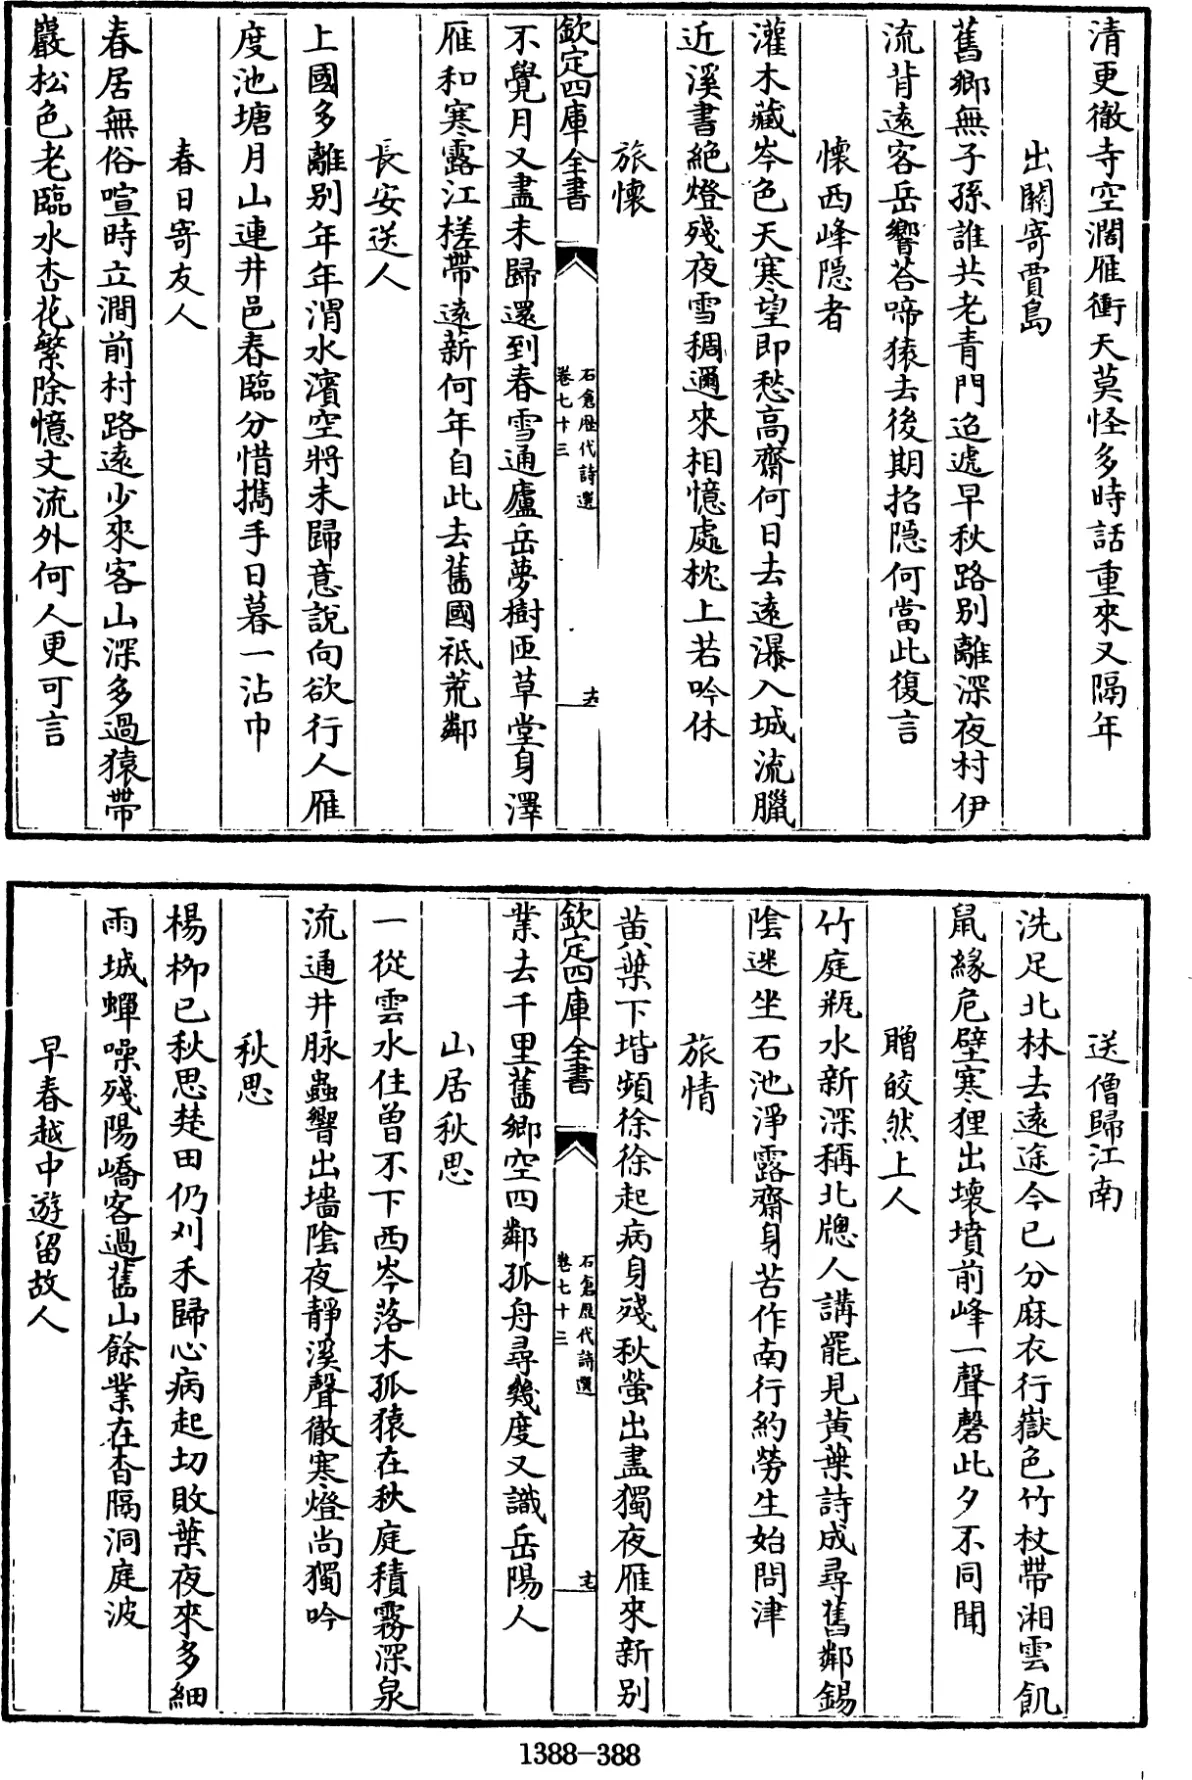 清更徹寺空濶雁衝天莫怪多時話重來又隔年
出關寄賈島
舊鄉無子孫誰共老青門迢遞早秋路别離深夜村伊
流背遠客岳響荅啼猿去後期招隠何當此復言
懷西峰隠者
灌木藏岑色天寒望即愁高齋何日去遠瀑入城流臘
近溪書絶燈殘夜雪稠邇來相憶處枕上若吟休
旅懷
欽定四庫全書
石倉歴代詩選
卷七十三
十六
不覺月又盡未歸還到春雪通廬岳夢樹匝草堂身澤
雁和寒露江槎帶遠新何年自此去舊國祗荒鄰
長安送人
上國多離别年年渭水濱空將未歸意説向欲行人雁
度池塘月山連井邑春臨分惜擕手日暮一沾巾
春日寄友人
春居無俗喧時立澗前村路遠少來客山深多過猿帶
巖松色老臨水杏花繁除憶文流外何人更可言
送僧歸江南
洗足北林去遠途今已分麻衣行嶽色竹杖帶湘雲飢
鼠緣危壁寒狸出壞墳前峰一聲磬此夕不同聞
贈皎然上人
竹庭瓶水新深稱北牕人講罷見黄葉詩成尋舊鄰錫
陰迷坐石池淨露齋身苦作南行約勞生始問津
旅情
黄葉下堦頻徐徐起病身殘秋螢出盡獨夜雁來新别
欽定四庫全書
石倉歴代詩選
卷七十三
十七
業去千里舊鄉空四鄰孤舟尋幾度又識岳陽人
山居秋思
一從雲水住曾不下西岑落木孤猿在秋庭積霧深泉
流通井脉蟲響出墻陰夜靜溪聲徹寒燈尚獨吟
秋思
楊柳已秋思楚田仍刈禾歸心病起切敗葉夜來多細
雨城蟬噪殘陽嶠客過舊山餘業在杳隔洞庭波
早春越中遊留故人
1388-388